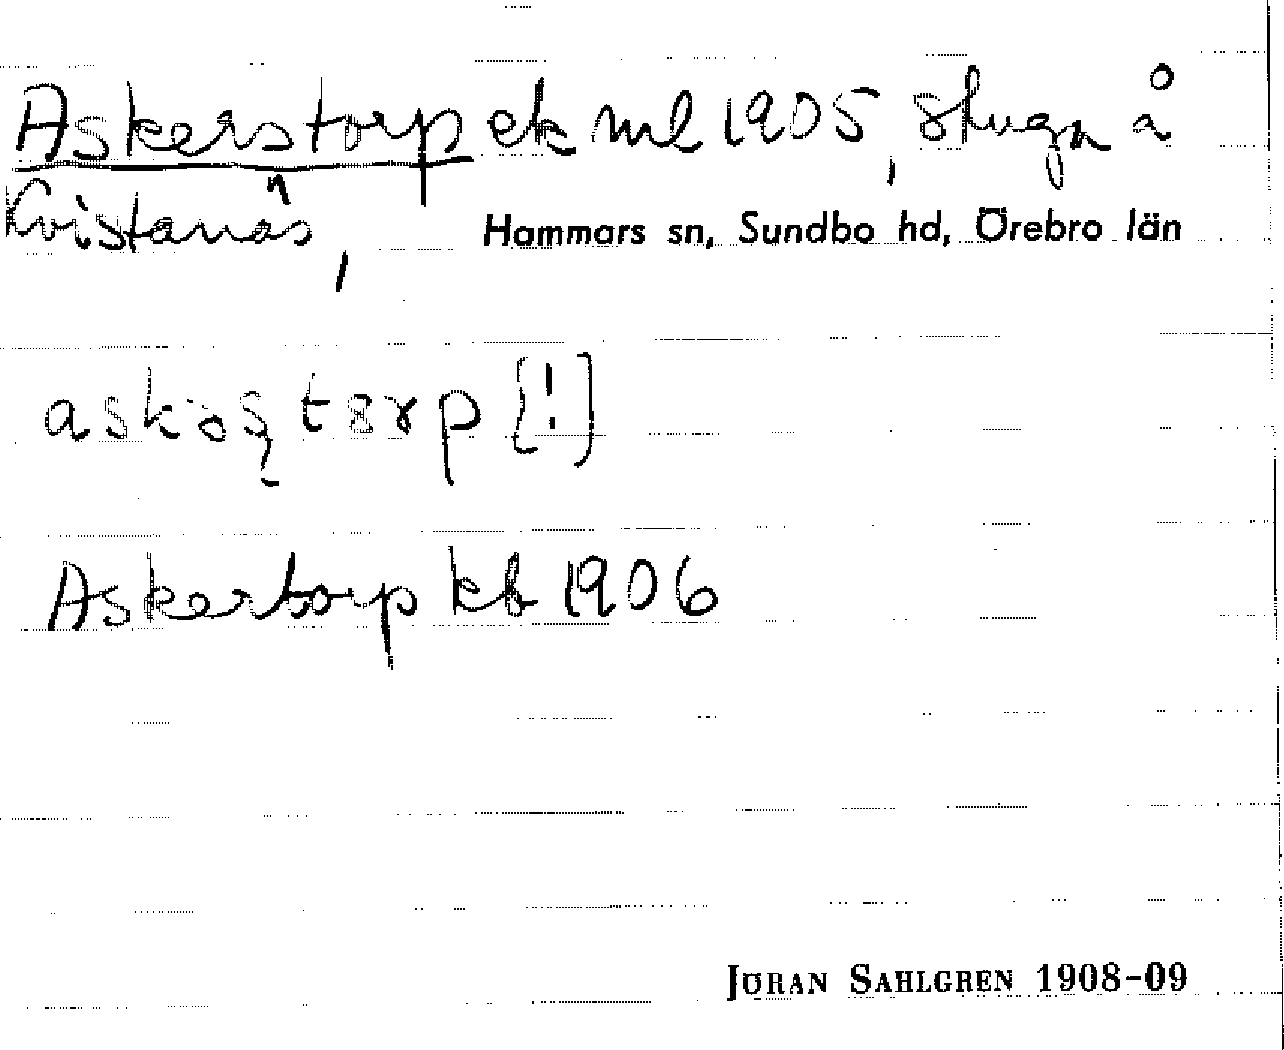 Askerstorp ek ml 1905, stuga å
Kvistanäs, Hammars sn, Sundbo hd, Örebro län
askəʂtɤrp [!]
Askertorp kb 1906
JÖRAN SAHLGREN 1908-09